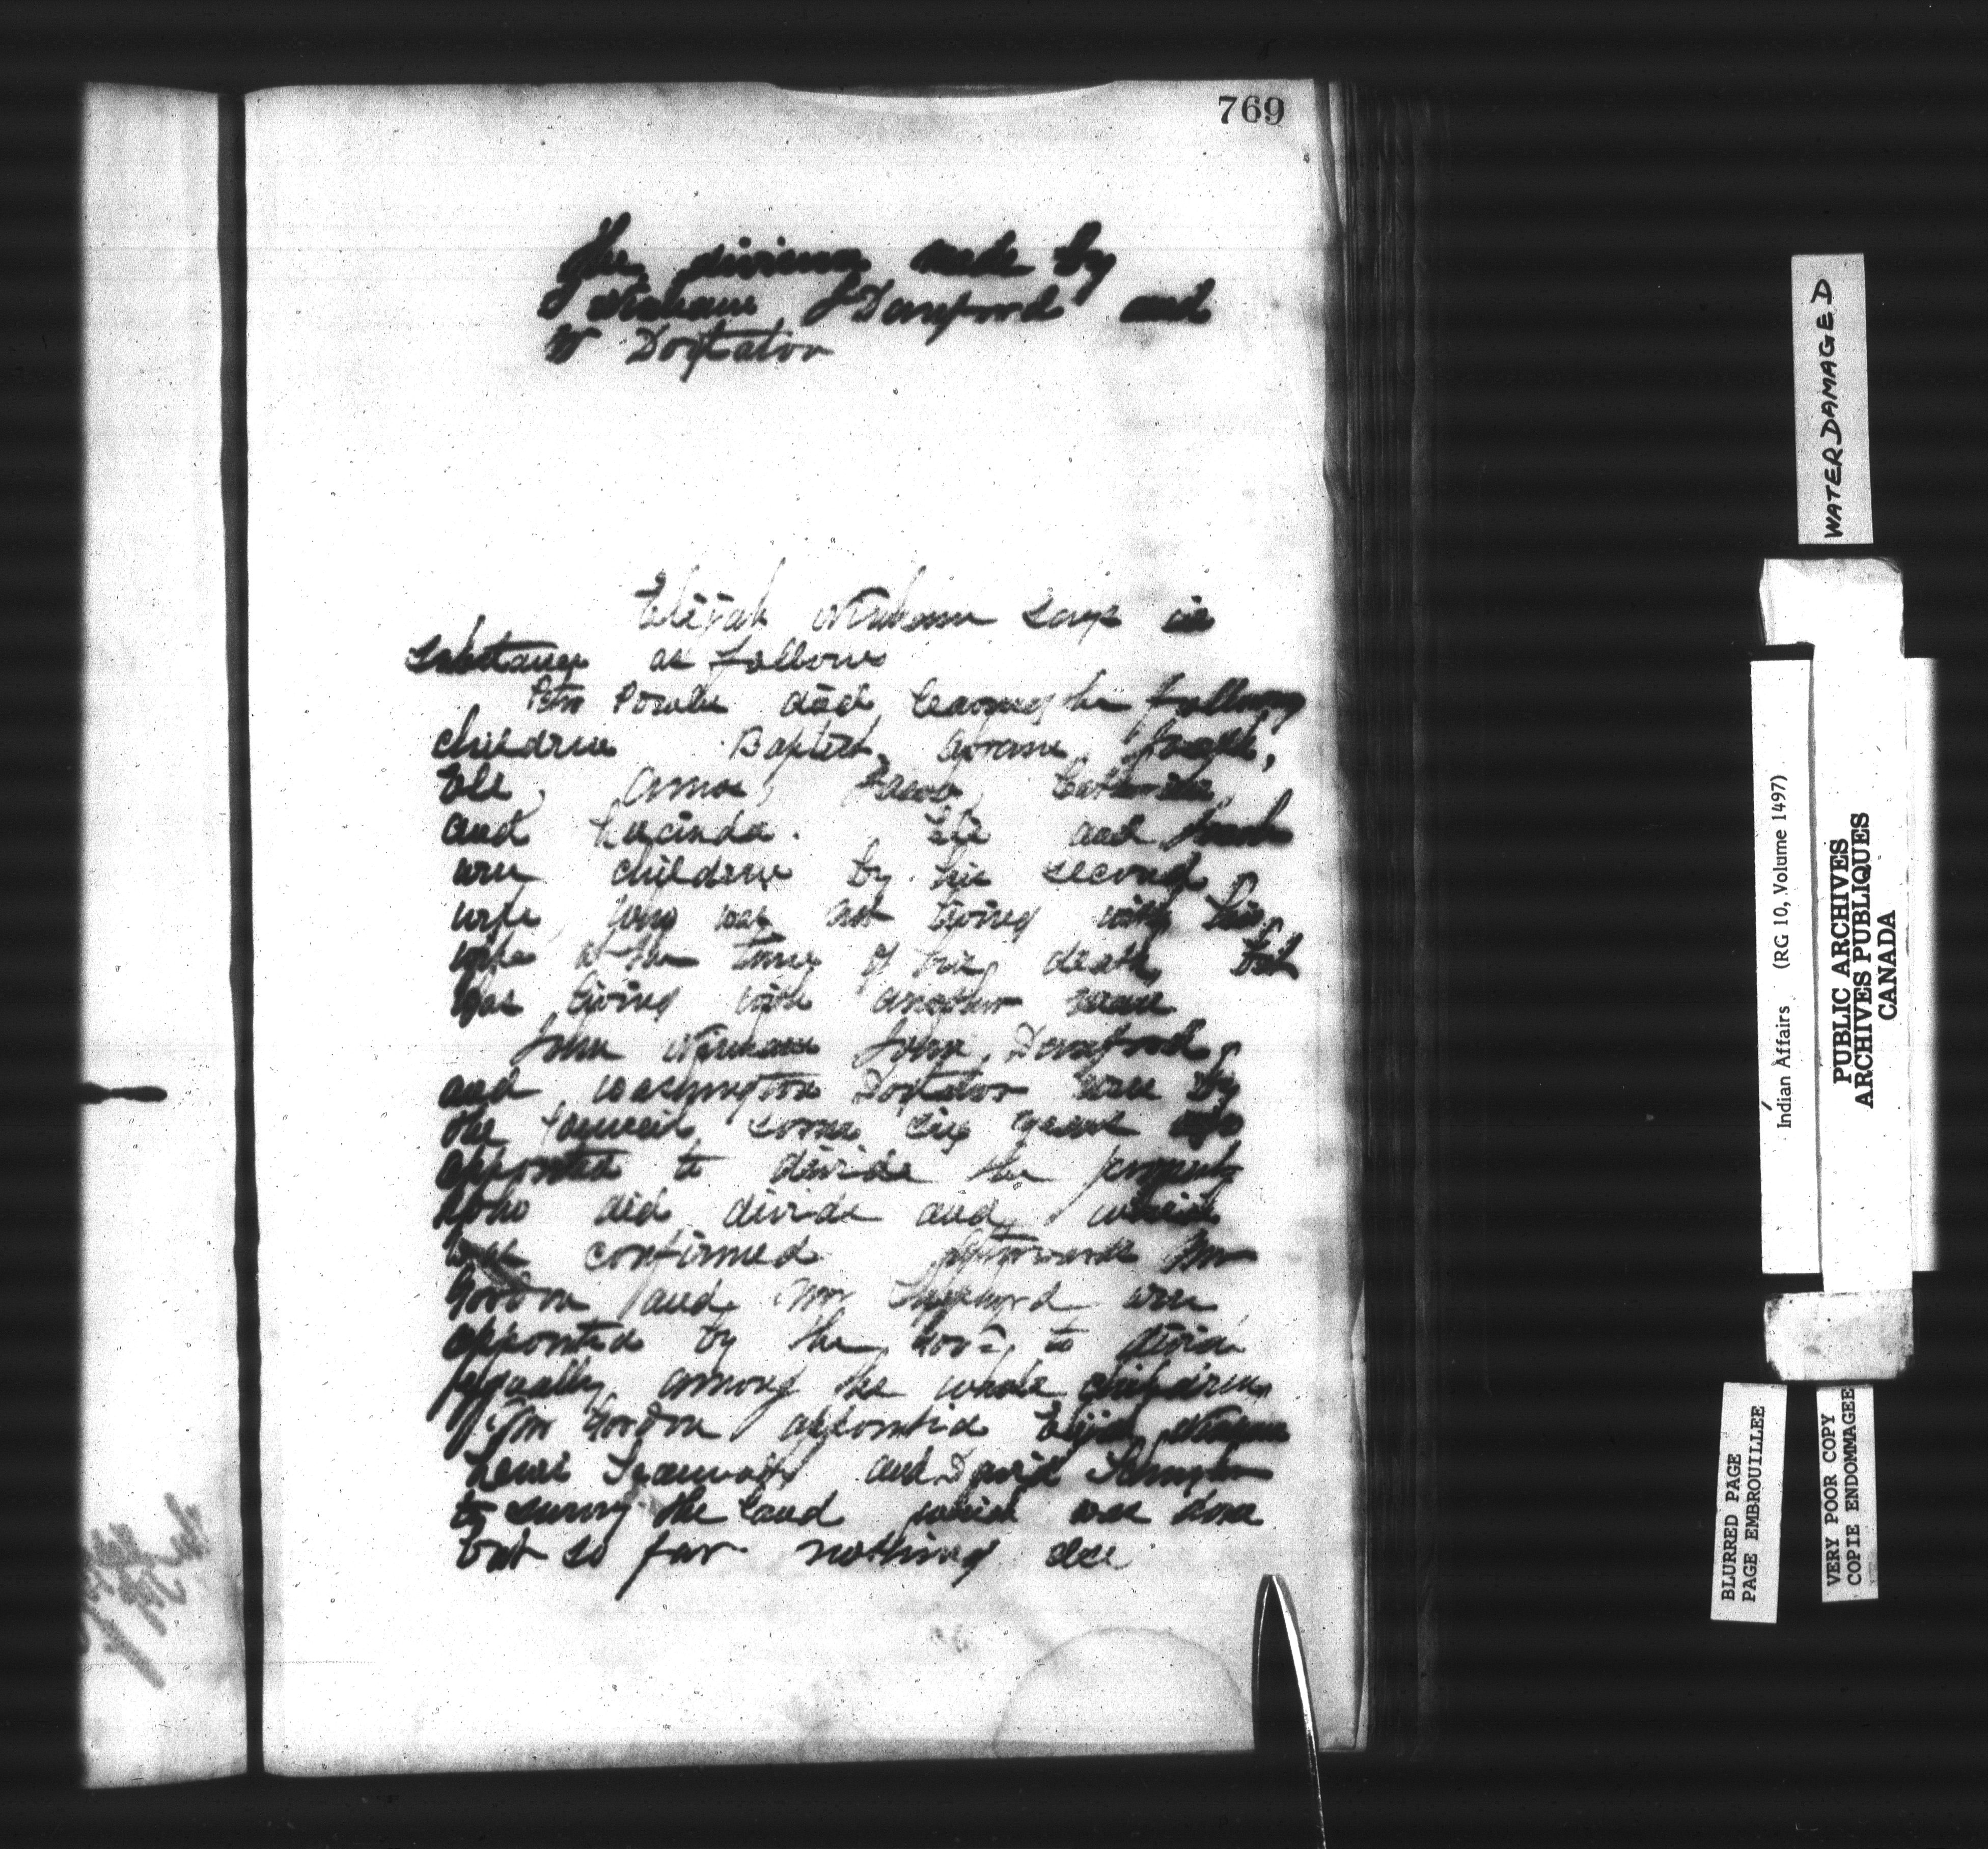 769
the division made by
J Ninham J Danford and
W Doxtator
Elijah Ninham says in
substance as follows
Peter Powles died leaving the following
children Baptist, Abram, Joseph,
Eli, Amos, Jacob, Catherine
and Lucinda. Eli and
were children by his second
wife, who was not living with his
wife at the time of his death but
was living with another man
John Ninham John Danford
and Washington Doxtator were by
the Council some six years ago
appointed to divide the property
who did divide and which
was confirmed afterwards Mr
Gordon and Mr Sheppard were
appointed by the Govt to divide
equally among the whole children
Mr Gordon appointed Elijah Ninham
Lewis and David
to survey the land which was done
but so far nothing else
WATER DAMAGED
Indian Affairs (RG 10, Volume 1497)
PUBLIC ARCHIVES
ARCHIVES PUBLIQUES
CANADA
BLURRED PAGE
PAGE EMBROUILLEE
VERY POOR COPY
COPIE ENDOMMAGEE